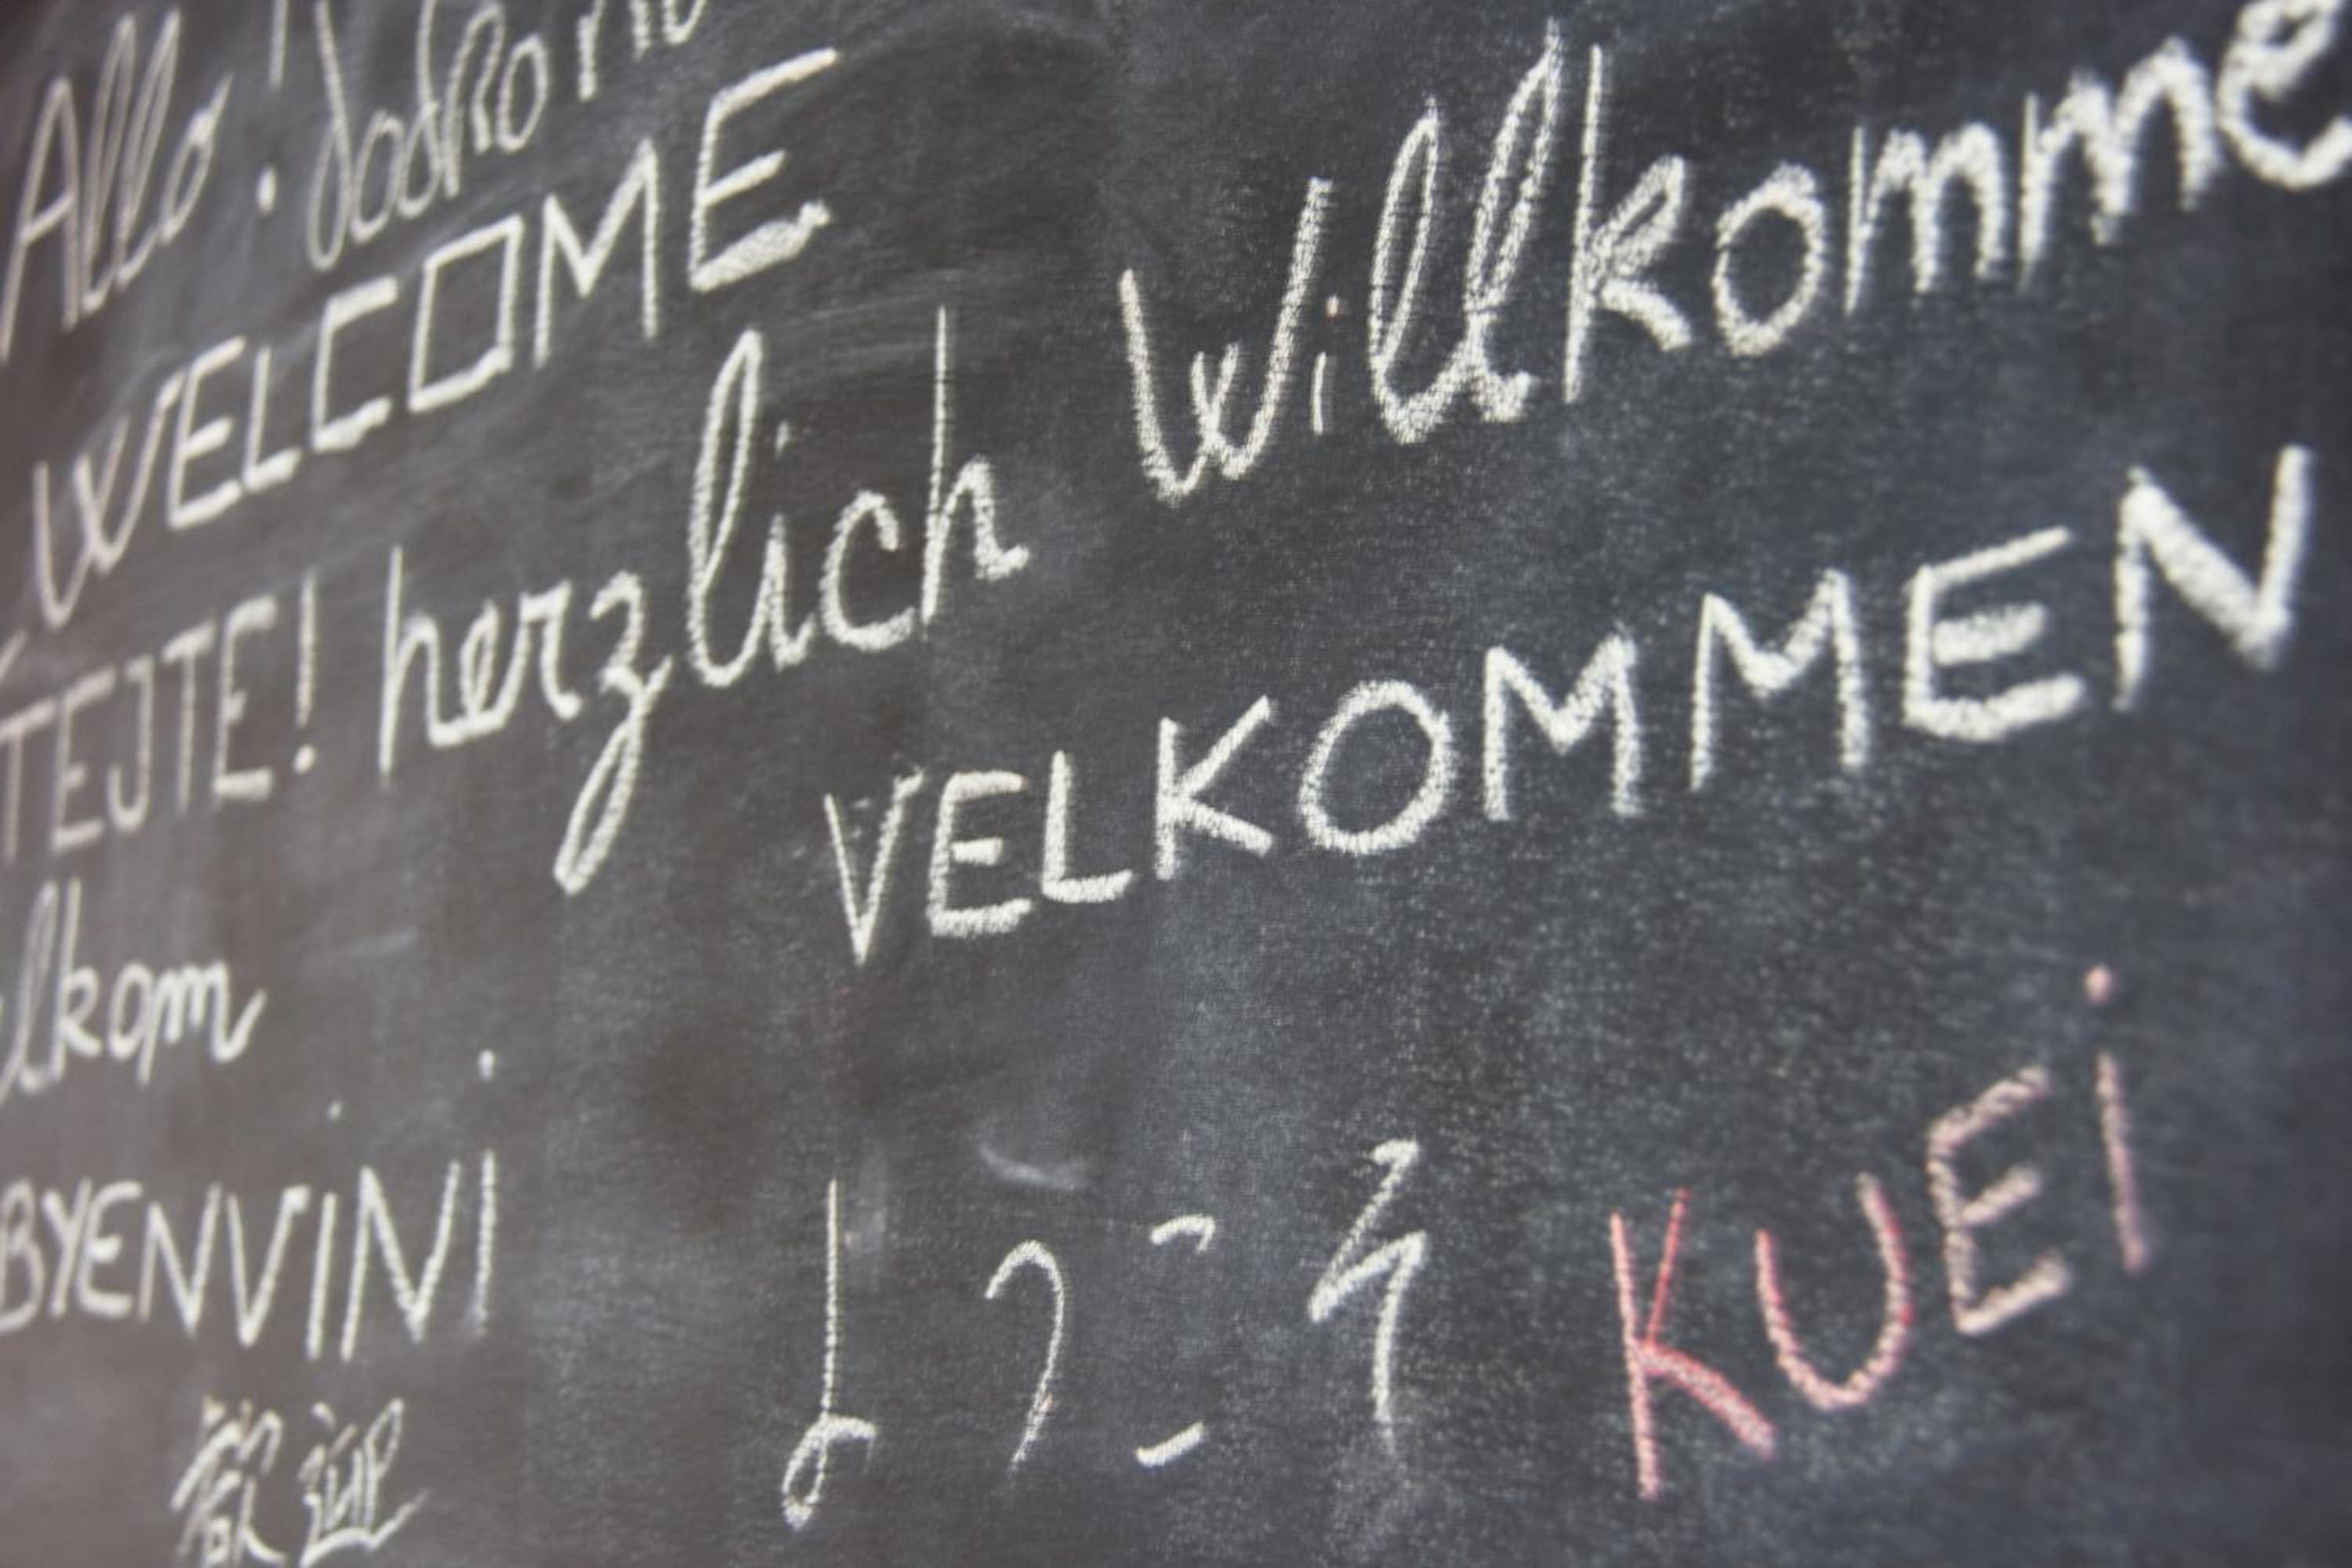 Allo!
WELCOME
TEJTE! herzlich Willkomme
VELKOMMEN
lkom
BYENVINI
KUEI
歡迎